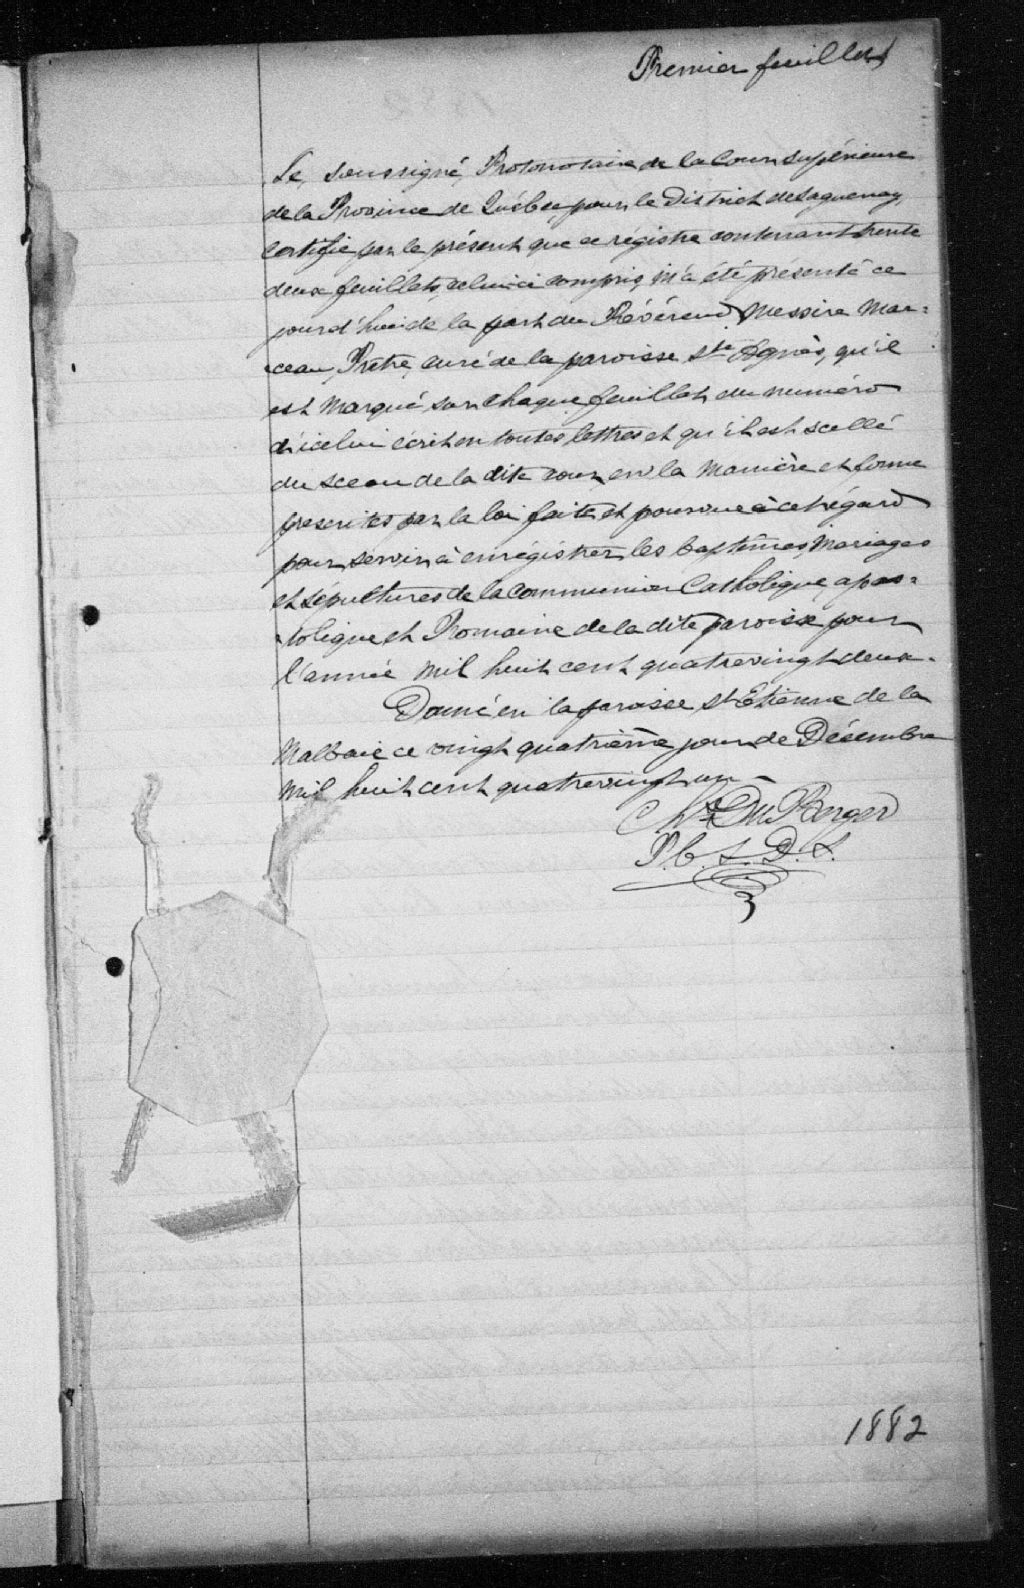 Premier feuillet
Le, soussigné, Protonotaire de la Cour Supérieure
de la Province de Québec, pour le District de Saguenay,
Certifie par le présent que ce régistre contenant trente
deux feuillets, celui-ci compris, m'a été présenté ce
jourd'hui de la part du Révérend Messire Mar=
ceau, Prêtre, curé de la paroisse Ste Agnès, qu'il
est marqué sur chaque feuillet du numéro
d'icelui écrit en toutes lettres et qu'il est scellé
du sceau de la dite cour, en la manière et forme
prescrites par la loi faite et pourvue à cet égard
pour servir à enrégistrer les baptêmes, Mariages
et sépultures de la Communion Catholique, apos=
tolique et Romaine de la dite paroisse pour
l'année mil huit cent quatrevingt deux.
Donné en la paroisse St Etienne de la
Malbaie ce vingt quatrième jour de Désembre
mil huit cent quatrevingt un
Chs Du Berger
P.C.S.D.S.
1882